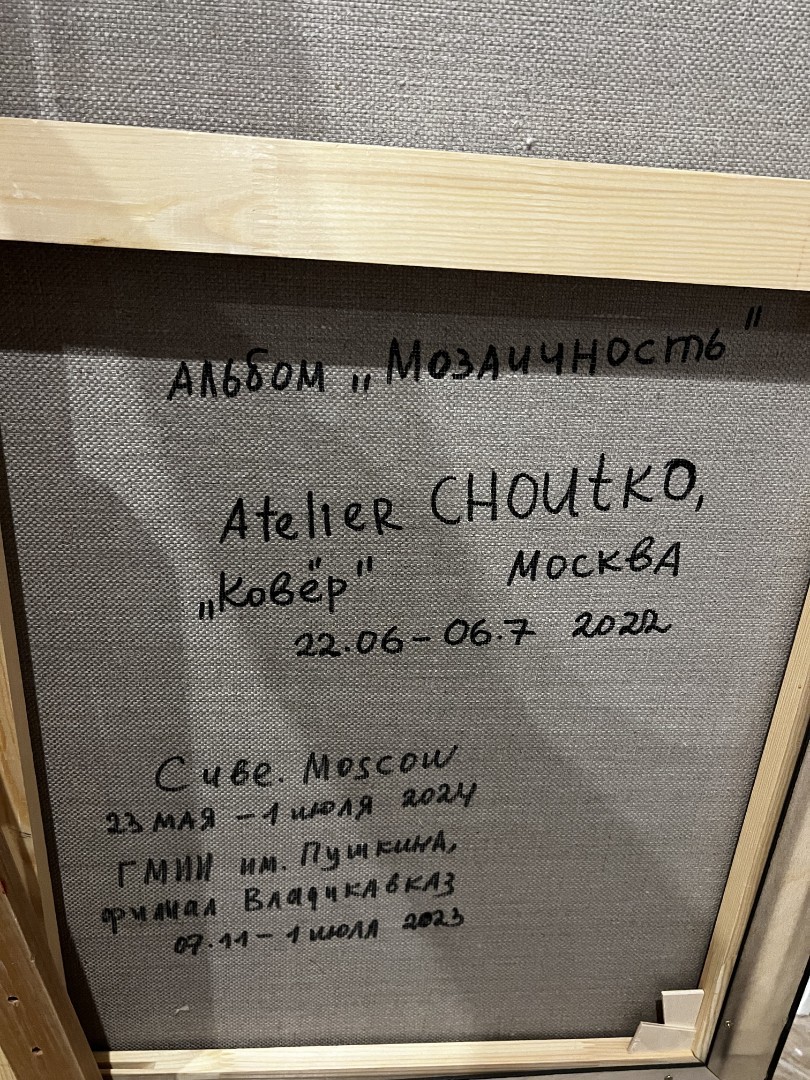 Альбом „Мозаичность"
Atelier CHOUTKO,
„Ковёр" Москва
22.06 – 06.7 2022
Cube. Moscow
23 мая – 1 июля 2024
ГМИИ им. Пушкина,
филиал Владикавказ
07.11 – 1 июля 2023